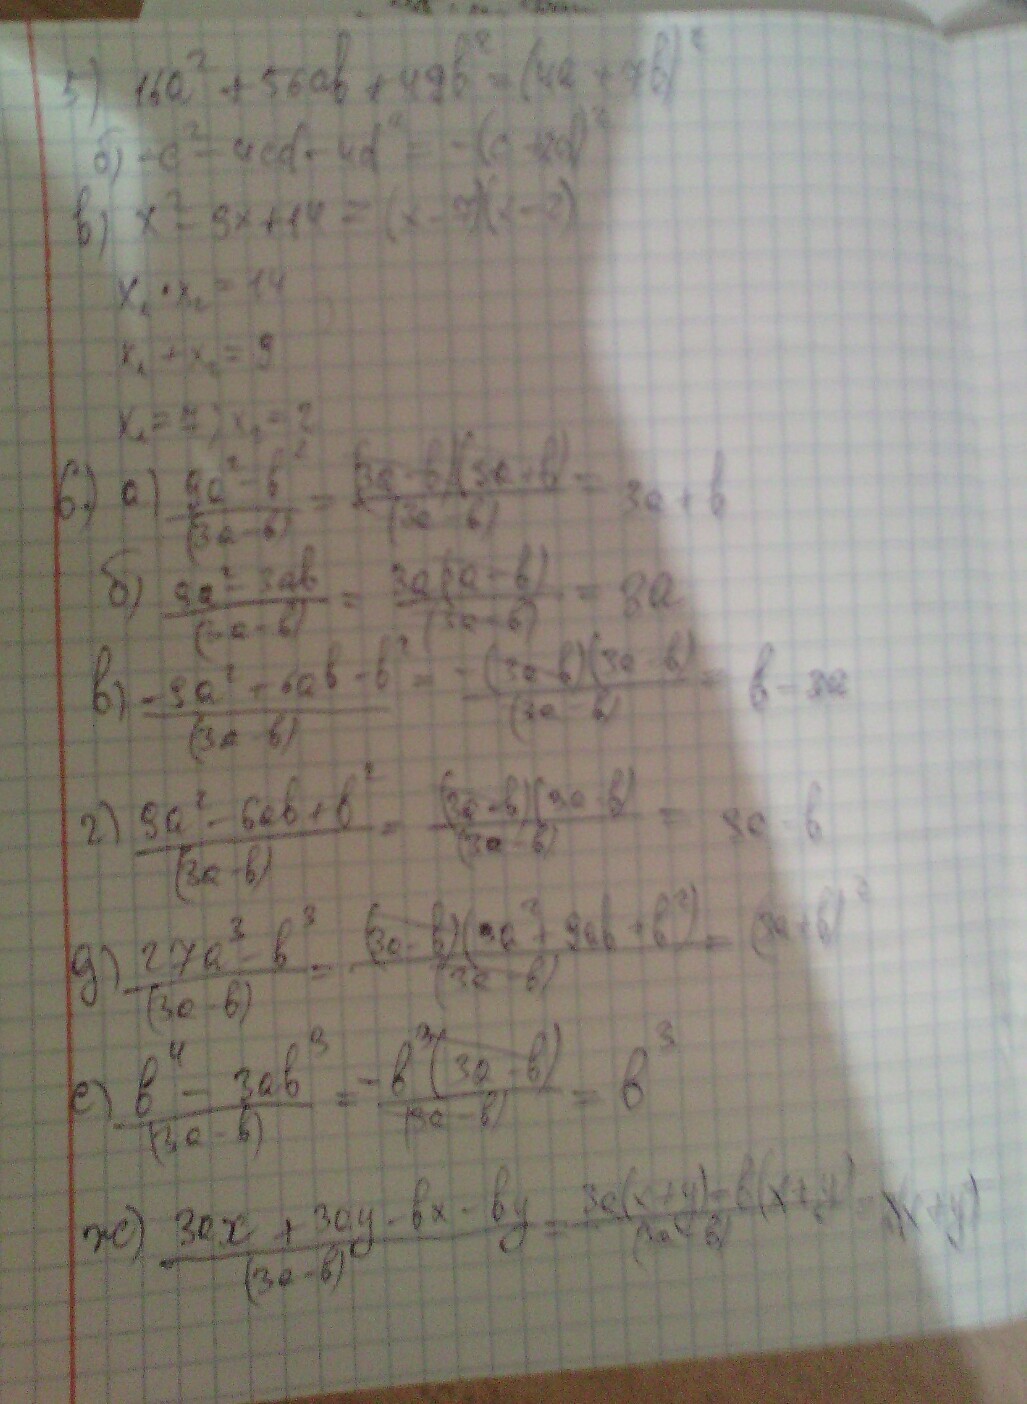 5) 16a² + 56ab + 49b² = (4a + 7b)²
б) -c² - 4cd - 4d² = -(c + 2d)²
в) x² - 9x + 14 = (x - 7)(x - 2)
x₁ · x₂ = 14
x₁ + x₂ = 9
x₁ = 7; x₂ = 2
6.) а) (9a² - b²)/(3a - b) = (3a - b)(3a + b)/(3a - b) = 3a + b
б) (9a² - 3ab)/(3a - b) = 3a(3a - b)/(3a - b) = 3a
в) (-9a² + 6ab - b²)/(3a - b) = -(3a - b)(3a - b)/(3a - b) = b - 3a
г) (9a² - 6ab + b²)/(3a - b) = (3a - b)(3a - b)/(3a - b) = 3a - b
д) (27a³ - b³)/(3a - b) = (3a - b)(9a² + 9ab + b²)/(3a - b) = (3a + b)²
е) (b⁴ - 3ab³)/(3a - b) = -b³(3a - b)/(3a - b) = b³
ж) (3ax + 3ay - bx - by)/(3a - b) = (3a(x + y) - b(x + y))/(3a - b) = (x + y)